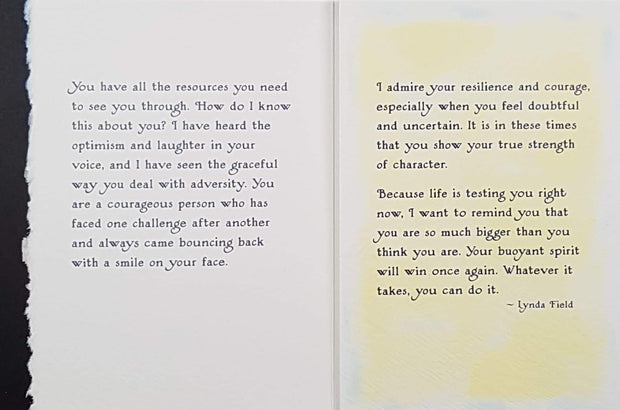 You have all the resources you need
to see you through. How do I know
this about you? I have heard the
optimism and laughter in your
voice, and I have seen the graceful
way you deal with adversity. You
are a courageous person who has
faced one challenge after another
and always came bouncing back
with a smile on your face.
I admire your resilience and courage,
especially when you feel doubtful
and uncertain. It is in these times
that you show your true strength
of character.
Because life is testing you right
now, I want to remind you that
you are so much bigger than you
think you are. Your buoyant spirit
will win once again. Whatever it
takes, you can do it.
~ Lynda Field